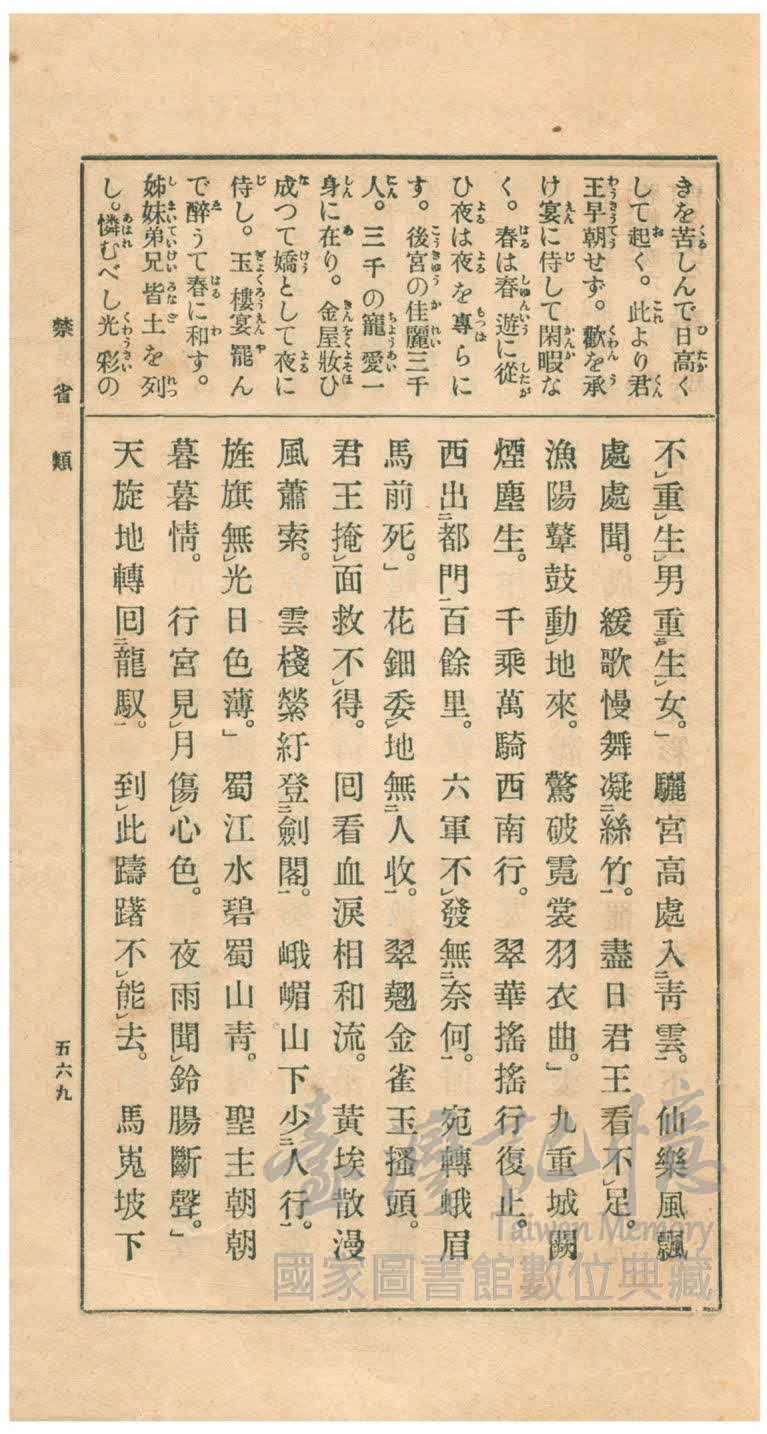 きを苦しんで日高く
して起く。此より君
王早朝せず。歡を承
け宴に侍して閑暇な
く。春は春遊に從
ひ夜は夜を專らに
す。後宮の佳麗三千
人。三千の寵愛一
身に在り。金屋妝ひ
成つて嬌として夜に
侍し。玉樓宴罷ん
で醉うて春に和す。
姊妹弟兄皆土を列
し。憐むべし光彩の
不重生男重生女。」驪宮高處入青雲。仙樂風飄
處處聞。緩歌慢舞凝絲竹。盡日君王看不足。
漁陽鼙鼓動地來。驚破霓裳羽衣曲。」九重城闕
煙塵生。千乘萬騎西南行。翠華搖搖行復止。
西出都門百餘里。六軍不發無奈何。宛轉蛾眉
馬前死。」花鈿委地無人收。翠翹金雀玉搔頭。
君王掩面救不得。囘看血淚相和流。黃埃散漫
風蕭索。雲棧縈紆登劍閣。峨嵋山下少人行。
旌旗無光日色薄。」蜀江水碧蜀山青。聖主朝朝
暮暮情。行宮見月傷心色。夜雨聞鈴腸斷聲。」
天旋地轉囘龍馭。到此躊躇不能去。馬嵬坡下
禁省類
五六九
臺灣記憶
Taiwan Memory
國家圖書館數位典藏